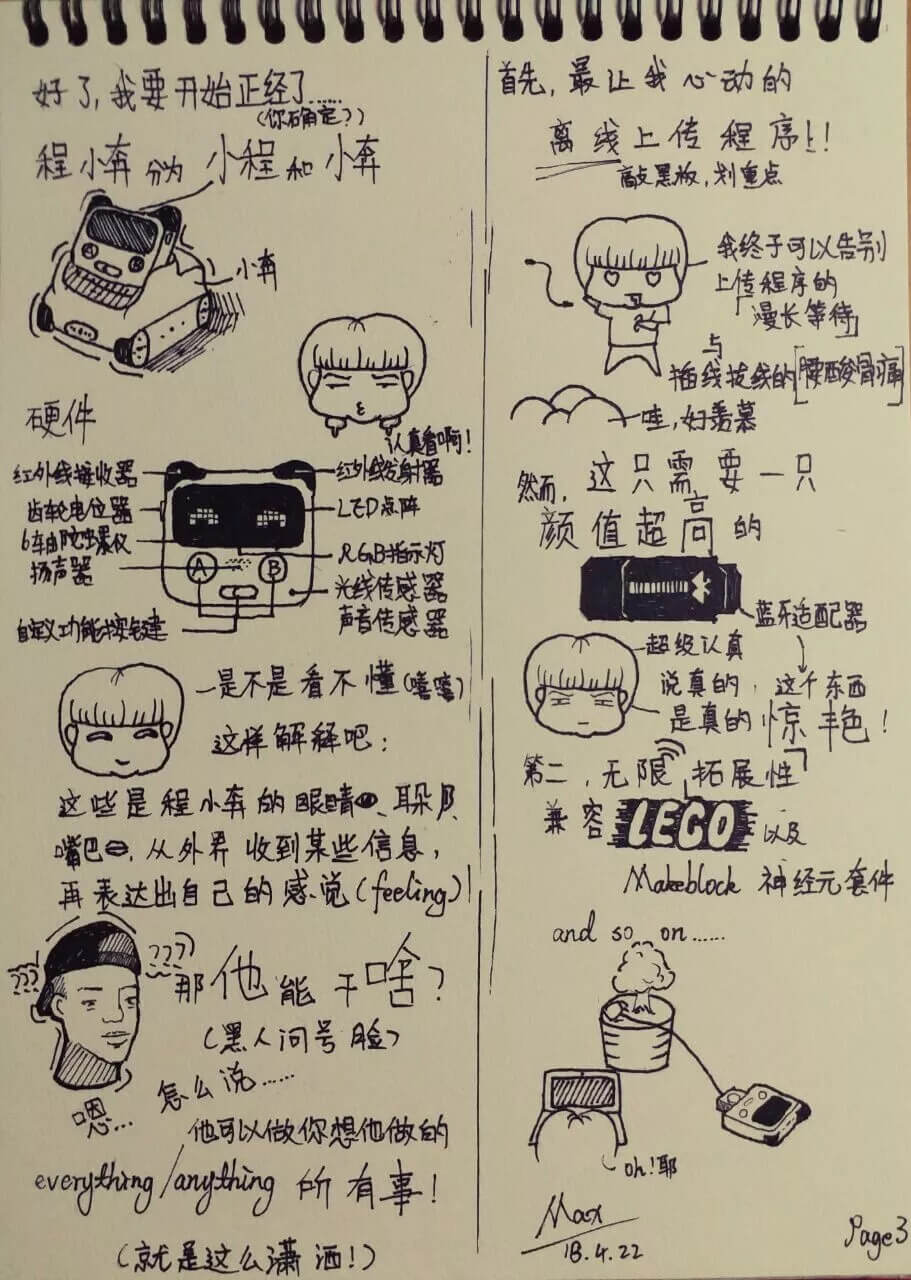 好了,我要开始正经了……
(你确定?)
程小奔 分为 小程 和 小奔
小奔
硬件
认真看啊!
红外线接收器
红外线发射器
齿轮电位器
LED点阵
6轴陀螺仪
RGB指示灯
扬声器
A
B
光线传感器
声音传感器
自定义功能按键
是不是看不懂(嘻嘻)
这样解释吧:
这些是程小奔的眼睛、耳朵、
嘴巴,从外界收到某些信息,
再表达出自己的感觉(feeling)!
???
???
那他能干啥?
(黑人问号脸)
嗯… 怎么说……
他可以做你想他做的
everything/anything 所有事!
(就是这么潇洒!)
首先,最让我心动的
离线上传程序!!
敲黑板,划重点
我终于可以告别
上传程序的
「漫长等待」
与
插线拔线的[腰酸骨痛]
哇,好羡慕
然而,这只需要一只
颜值超高的
蓝牙适配器
超级认真
说真的,这个东西
是真的惊艳!
第二,无限拓展性
兼容 LEGO 以及
Makeblock 神经元套件
and so on……
oh!耶
Max
18.4.22
Page3